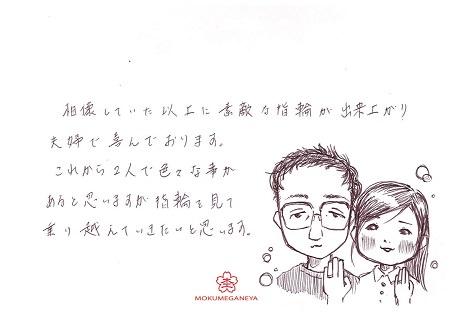 想像していた以上に素敵な指輪が出来上がり
夫婦で喜んでおります。
これから2人で色々な事が
あると思いますが指輪を見て
乗り越えていきたいと思います。
MOKUMEGANEYA